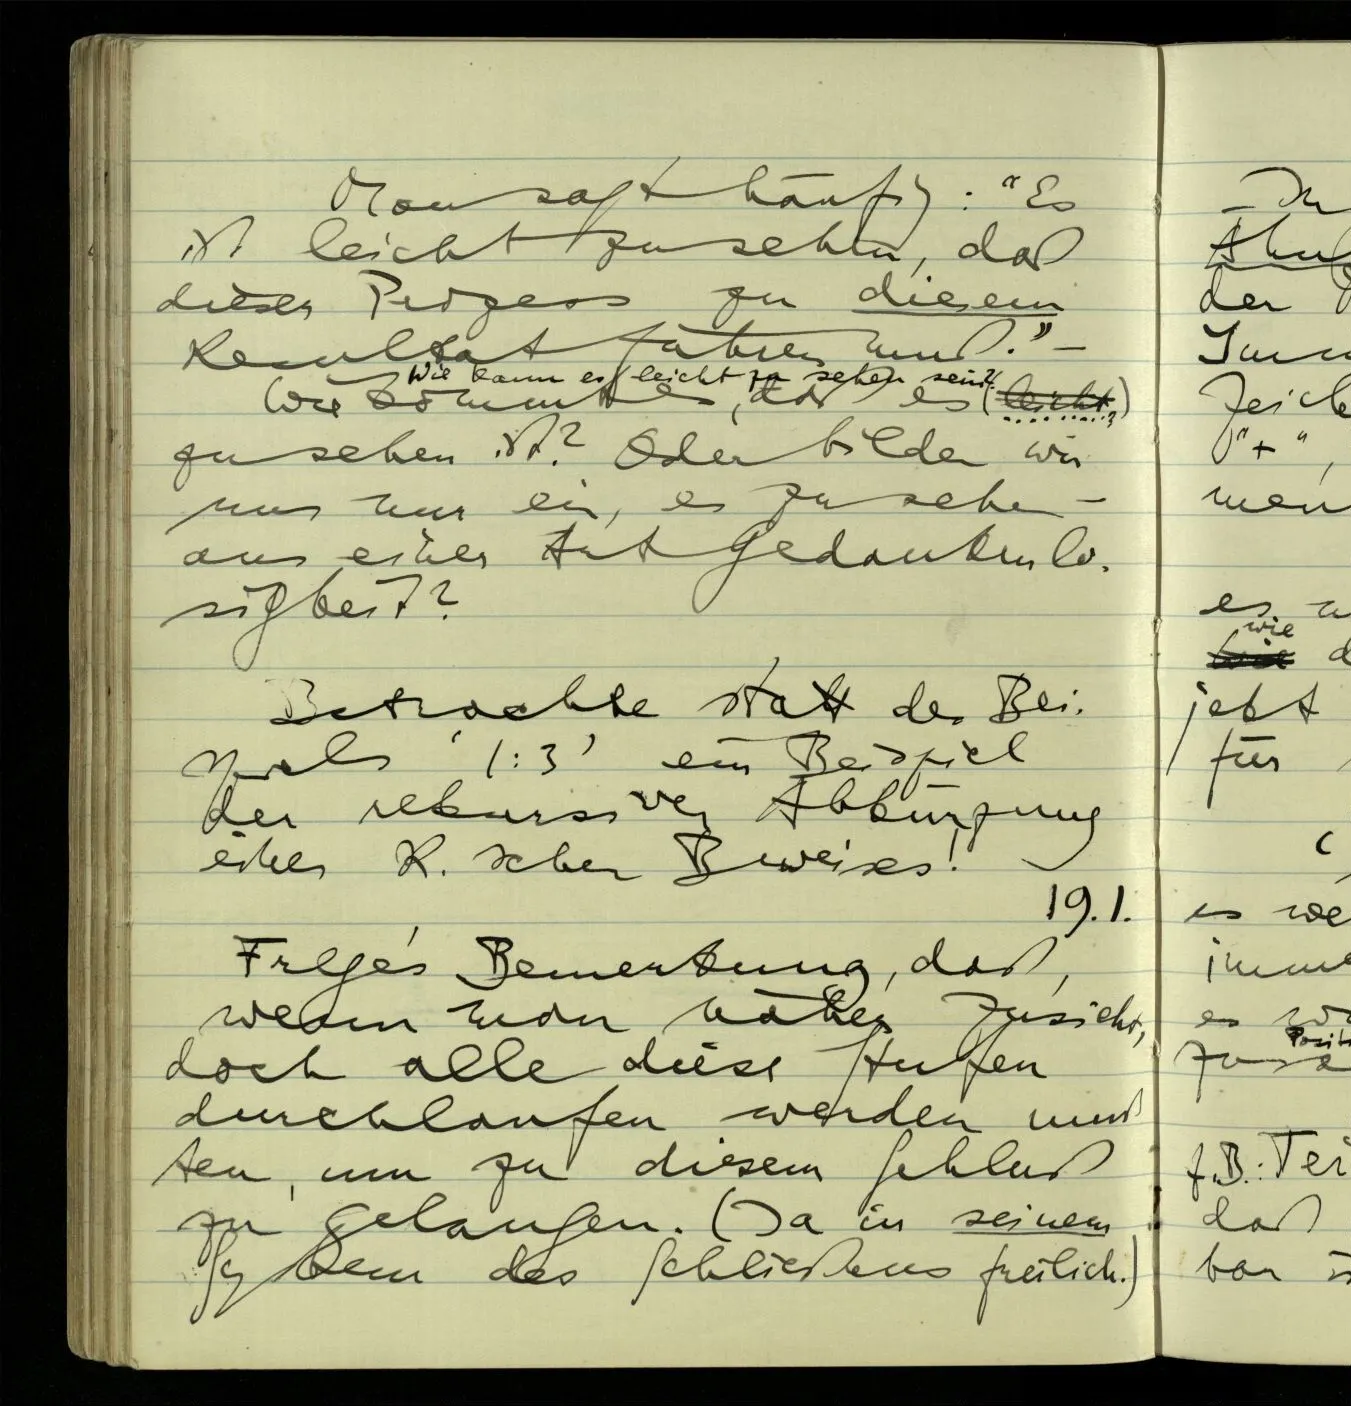 Man sagt häufig: "Es
ist leicht zu sehen, daß
dieser Prozess zu diesem
Resultat führen muß." –
Wie kann es leicht zu sehen sein?
Wie kommt es, daß es (leicht)
zu sehen ist? Oder bilden wir
uns nur ein, es zu sehen –
aus einer Art Gedankenlo-
sigkeit?
Betrachte statt des Bei-
spiels '1:3' ein Beispiel
der rekursiven Abkürzung
eines R.schen Beweises!
19.1.
Frege's Bemerkung, daß,
wenn man näher zusieht,
doch alle diese Stufen
durchlaufen werden muß
ten, um zu diesem Schluß
zu gelangen. (Ja in seinem
System des Schließens freilich.)
der
"+",
es
wie
jetzt
für
es
es
z.B.:
daß
bar